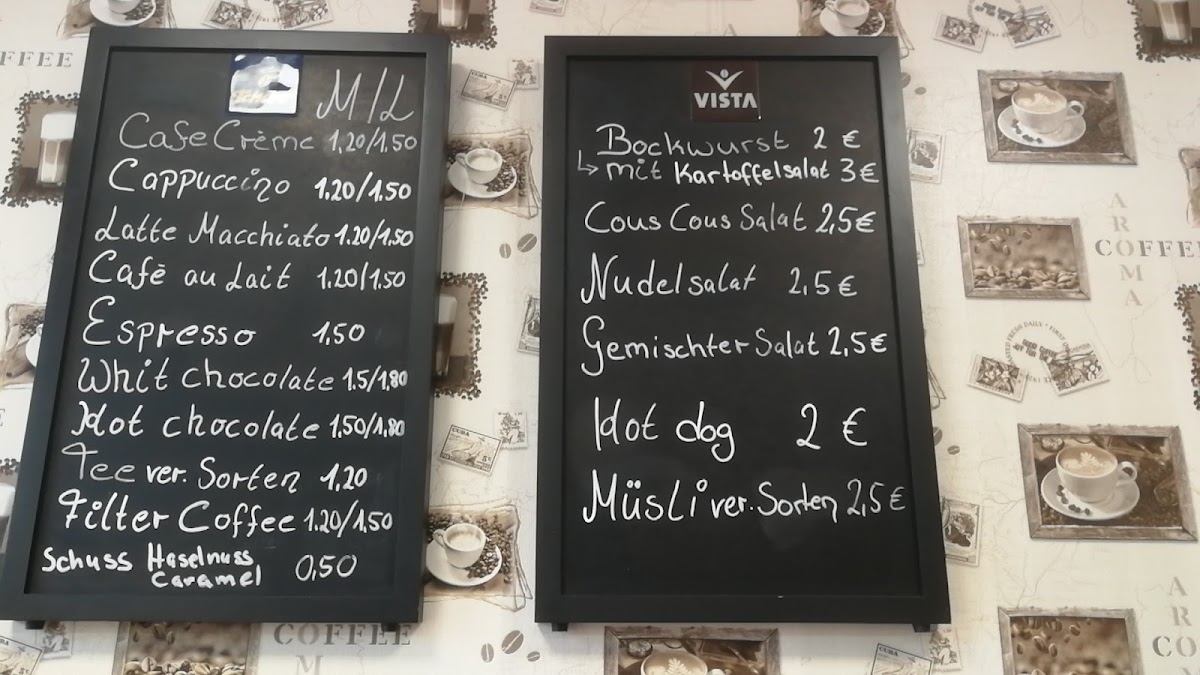 M/L
Cafe Crème 1,20/1,50
Cappuccino 1.20/1.50
Latte Macchiato 1.20/1.50
Cafè au Lait 1.20/1.50
Espresso 1,50
Whit chocolate 1.5/1,80
Hot chocolate 1,50/1,80
Tee ver. Sorten 1,20
Filter Coffee 1.20/1,50
Schuss Haselnuss 0,50
Caramel
VISTA
Bockwurst 2 €
↳ mit Kartoffelsalat 3 €
Cous Cous Salat 2,5 €
Nudelsalat 2,5 €
Gemischter Salat 2,5 €
Hot dog 2 €
Müsli ver. Sorten 2,5 €
COFFEE
CUBA
CUBA
COFFEE
AROMA
COFFEE
AROMA
COFFEE